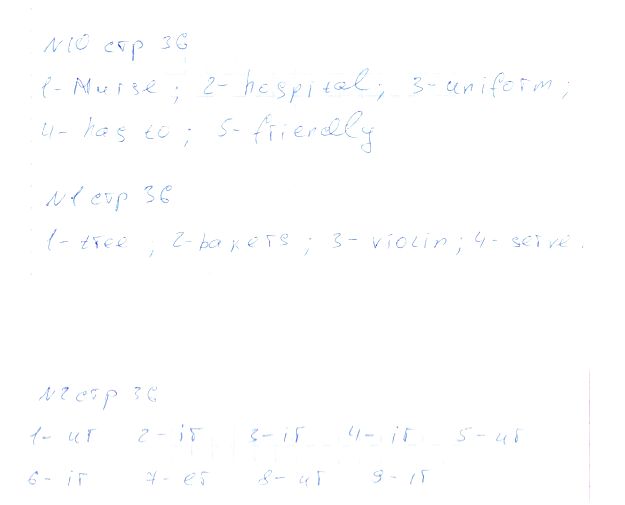 N10 стр 36
1- Nurse; 2- hospital; 3- uniform;
4- has to; 5- friendly
N1 стр 36
1- tree, 2- bakers; 3- violin; 4- serve.
N2 стр 36
1- ur 2- ir 3- ir 4- ir 5- ur
6- ir 7- er 8- ur 9- ir